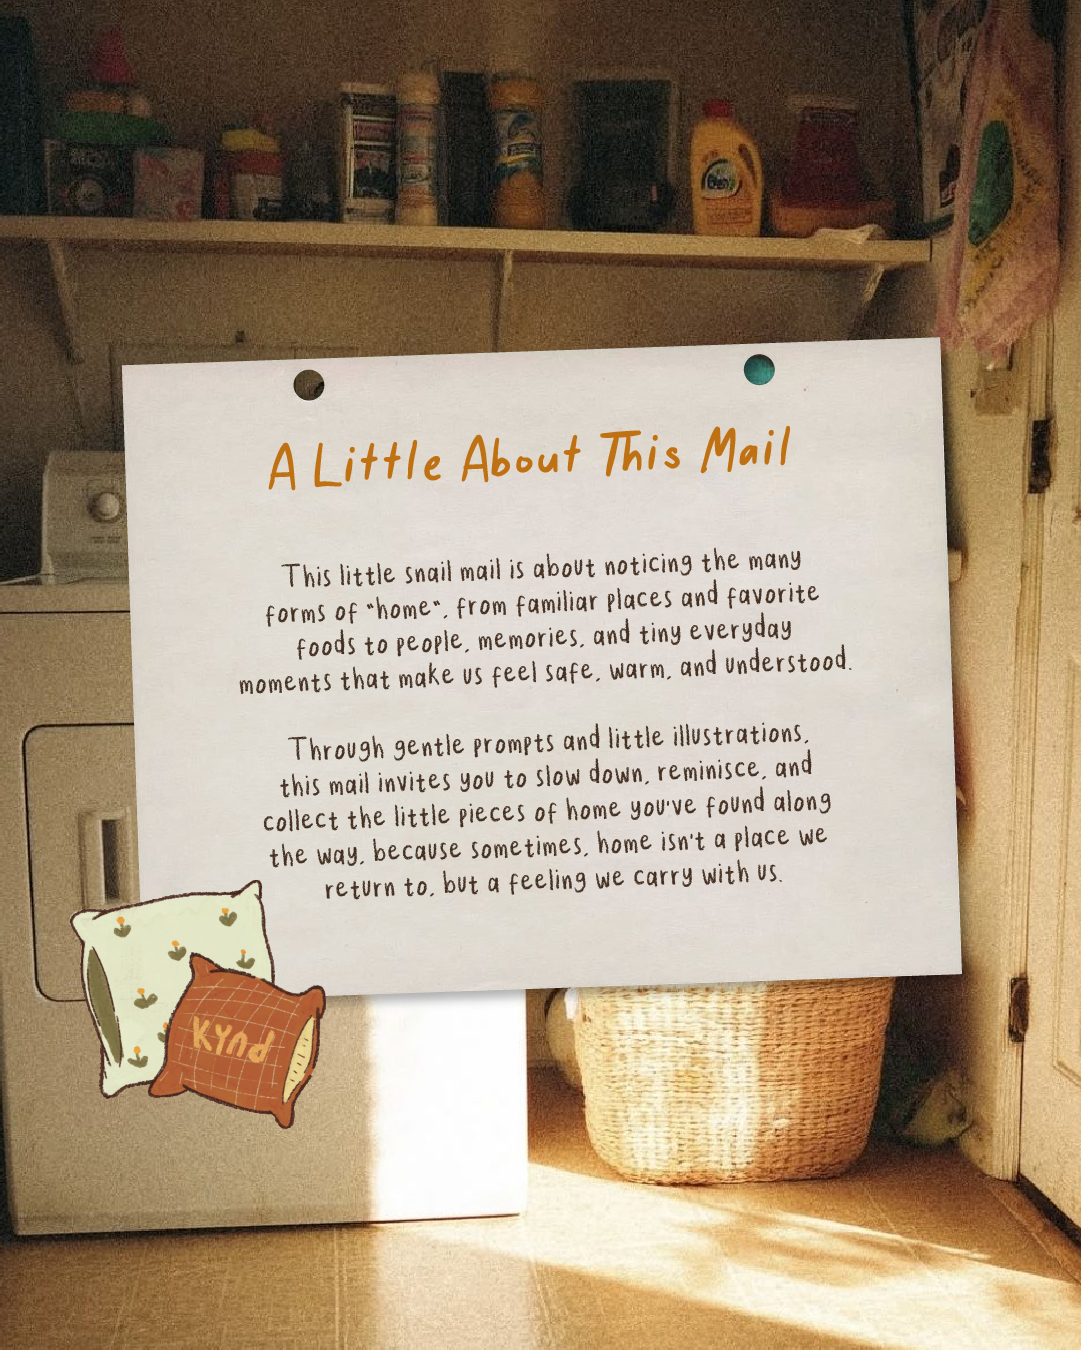 A Little About This Mail
This little snail mail is about noticing the many
forms of "home", from familiar places and favorite
foods to people, memories, and tiny everyday
moments that make us feel safe, warm, and understood.
Through gentle prompts and little illustrations,
this mail invites you to slow down, reminisce, and
collect the little pieces of home you've found along
the way, because sometimes, home isn't a place we
return to, but a feeling we carry with us.
KYnd